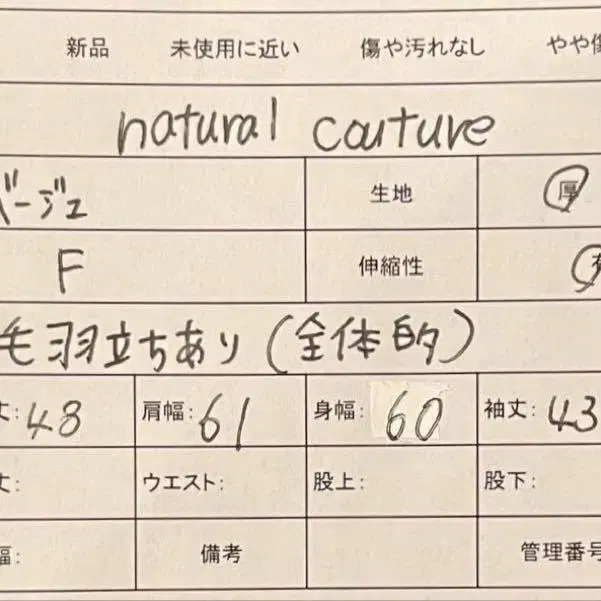 新品 未使用に近い 傷や汚れなし やや傷
natural couture
ベージュ 生地 厚
F 伸縮性 有
毛羽立ちあり(全体的)
丈:48 肩幅:61 身幅:60 袖丈:43
丈: ウエスト: 股上: 股下:
幅: 備考 管理番号